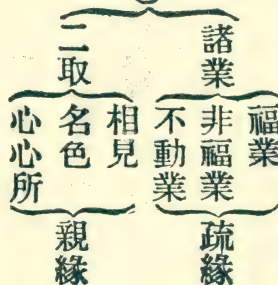 諸業
福業
非福業
不動業
疏緣
二取
相見
名色
心心所
親緣